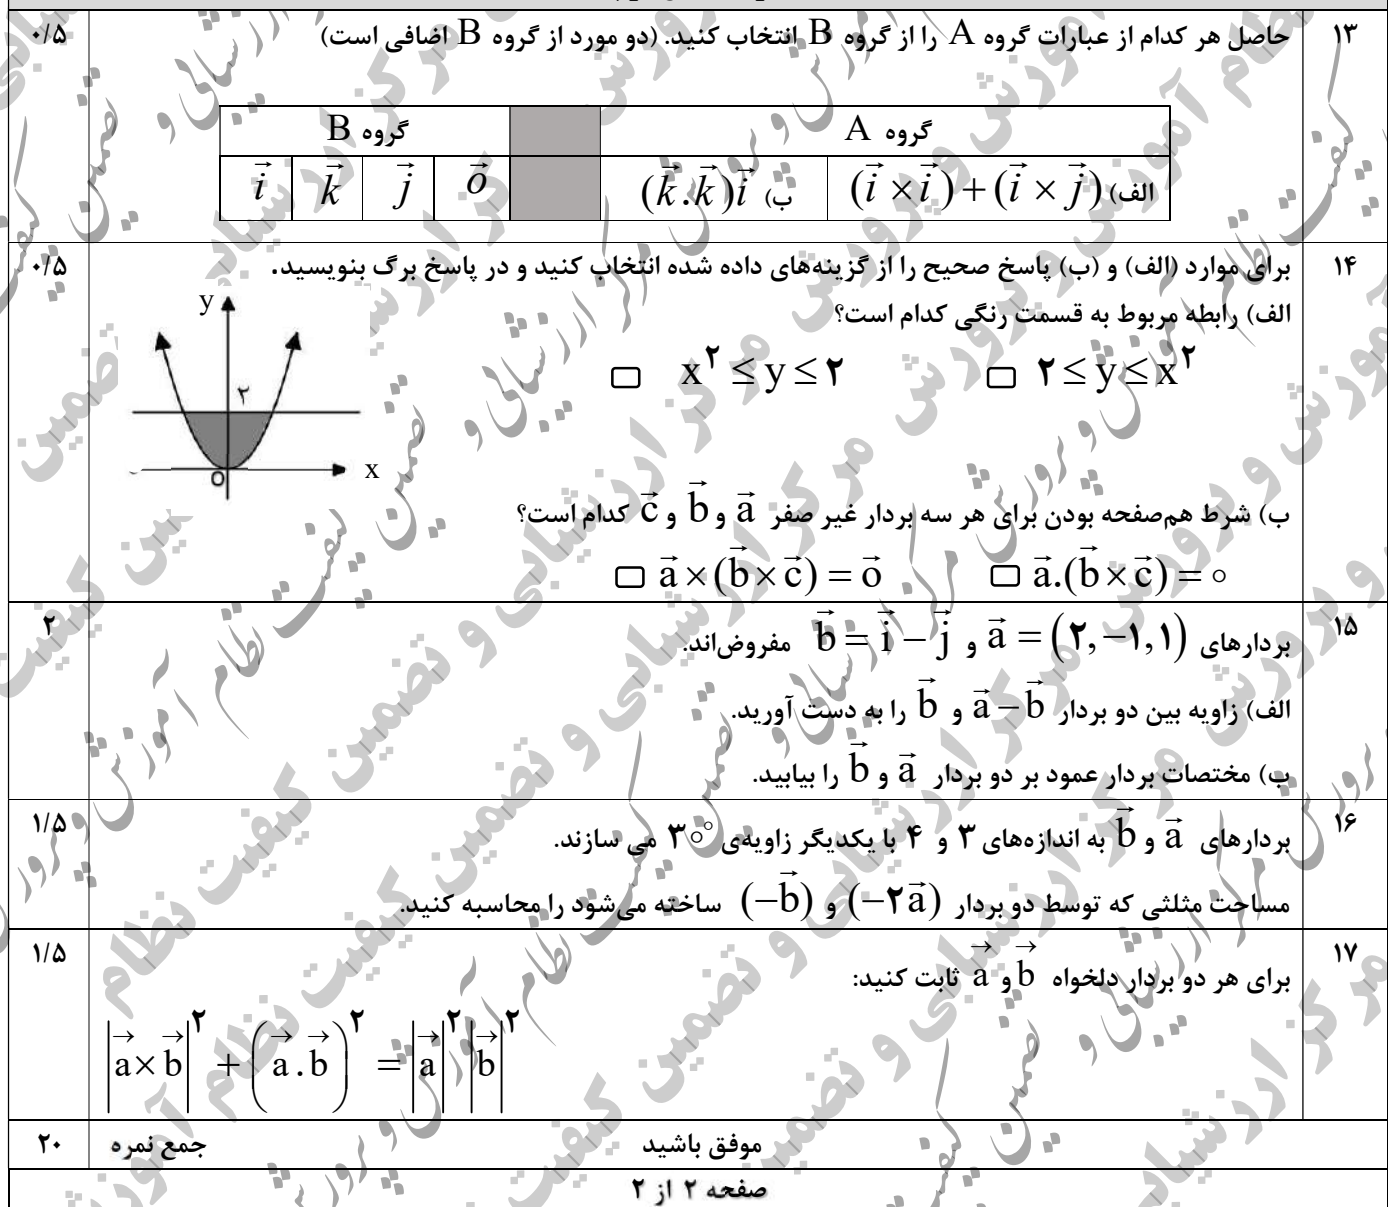 ۱۳ حاصل هر کدام از عبارات گروه A را از گروه B انتخاب کنید. (دو مورد از گروه B اضافی است) ۰/۵
گروه A گروه B
الف) (i⃗ × i⃗) + (i⃗ × j⃗) ب) (k⃗ . k⃗)i⃗ o⃗ j⃗ k⃗ i⃗
۱۴ برای موارد (الف) و (ب) پاسخ صحیح را از گزینه‌های داده شده انتخاب کنید و در پاسخ برگ بنویسید. ۰/۵
الف) رابطه مربوط به قسمت رنگی کدام است؟
۲ ≤ y ≤ x^۲ x^۲ ≤ y ≤ ۲
y
۲
O x
ب) شرط هم‌صفحه بودن برای هر سه بردار غیر صفر a⃗ و b⃗ و c⃗ کدام است؟
a⃗ . (b⃗ × c⃗) = ۰ a⃗ × (b⃗ × c⃗) = o⃗
۱۵ بردارهای a⃗ = (۲, −۱, ۱) و b⃗ = i⃗ − j⃗ مفروض‌اند. ۲
الف) زاویه بین دو بردار a⃗ − b⃗ و b⃗ را به دست آورید.
ب) مختصات بردار عمود بر دو بردار a⃗ و b⃗ را بیابید.
۱۶ بردارهای a⃗ و b⃗ به اندازه‌های ۳ و ۴ با یکدیگر زاویه‌ی ۳۰° می سازند. ۱/۵
مساحت مثلثی که توسط دو بردار (−۲a⃗) و (−b⃗) ساخته می‌شود را محاسبه کنید.
۱۷ برای هر دو بردار دلخواه b⃗ و a⃗ ثابت کنید: ۱/۵
|a⃗ × b⃗|^۲ + (a⃗ . b⃗)^۲ = |a⃗|^۲ |b⃗|^۲
موفق باشید جمع نمره ۲۰
صفحه ۲ از ۲
مرکز ارزشیابی و تضمین کیفیت نظام آموزش و پرورش